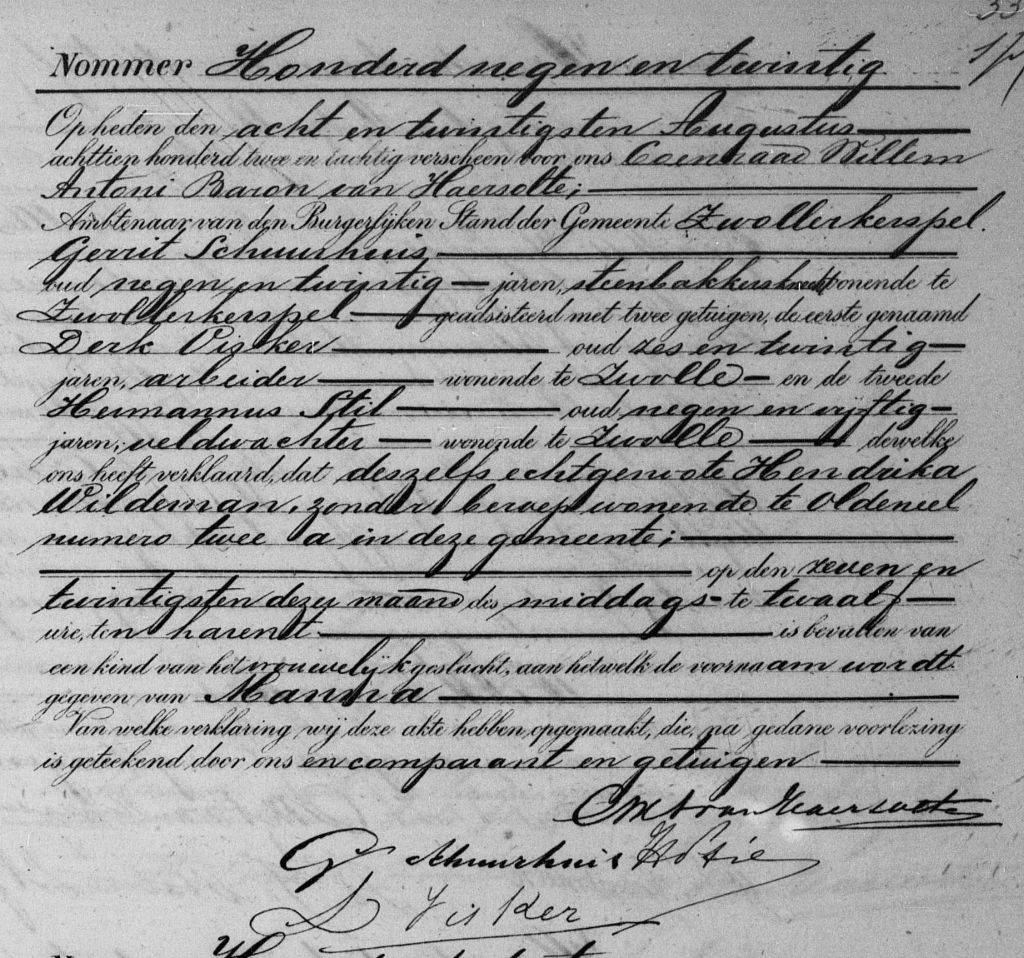 33
Nommer Honderd negen en twintig
Op heden den acht en twintigsten Augustus
achttien honderd twee en tachtig verscheen voor ons Coenraad Willem
Antoni Baron van Haersolte;
Ambtenaar van den Burgerlijken Stand der Gemeente Zwollerkerspel.
Gerrit Schuurhuis
oud negen en twintig jaren, steenbakkersknecht wonende te
Zwollerkerspel geadsisteerd met twee getuigen, de eerste genaamd
Derk Visker oud zes en twintig
jaren, arbeider wonende te Zwolle en de tweede
Hermannus Stil oud negen en vijftig
jaren, veldwachter wonende te Zwolle dewelke
ons heeft verklaard, dat deszelfs echtgenoote Hendrika
Wildeman, zonder beroep wonende te Oldeneel
numero twee a in deze gemeente;
op den zeven en
twintigsten dezer maand des middags te twaalf
ure, ten harent is bevallen van
een kind van het vrouwelijk geslacht, aan hetwelk de voornaam wordt
gegeven van Manna
Van welke verklaring wij deze akte hebben opgemaakt, die, na gedane voorlezing
is geteekend door ons en comparant en getuigen
CWA van Haersolte
G Schuurhuis H Stil
D Visker